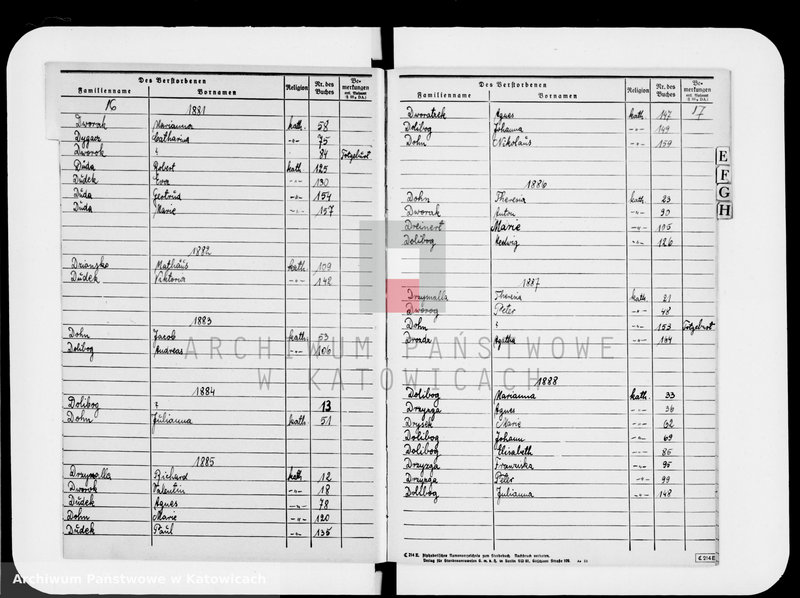 Des Verstorbenen
Familienname Vornamen Religion Nr. des Buches Bemerkungen
16 1881
Dworak Marianna kath. 58
Dygacz Catharina -"- 75
Dworok ? 84 Totgeburt
Duda Robert kath. 125
Dudek Eva -"- 130
Duda Gertrud -"- 154
Duda Marie -"- 157
1882
Dziansko Mathäus kath. 109
Dudek Viktoria -"- 142
1883
Dohn Jacob kath. 53
Dolibog Andreas -"- 106
1884
Dolibog ? 13
Dohn Julianna kath. 51
1885
Drzymalla Richard kath. 12
Dworok Valentin -"- 18
Dudek Agnes -"- 78
Dohn Marie -"- 120
Dudek Paul -"- 135
Des Verstorbenen
Familienname Vornamen Religion Nr. des Buches Bemerkungen
17
Dworatzek Agnes kath. 147
Dolibog Johanna -"- 149
Dohn Nikolaus -"- 159
1886
Dohn Theresia kath. 23
Dworak Anton -"- 90
Dreinert Marie -"- 105
Dolibog Hedwig -"- 126
1887
Drzymalla Theresia kath. 21
Dworog Peter -"- 48
Dohn ? -"- 153 Totgeburt
Agatha -"- 154
1888
Dolibog Marianna kath. 33
Drzyzga Agnes -"- 36
Drysek Marie -"- 62
Dolibog Johann -"- 69
Dolibog Elisabeth -"- 85
Drzyzga Franziska -"- 95
Drzyzga Peter -"- 99
Dolibog Julianna -"- 148
E
F
G
H
C 214 E. Alphabetisches Namenverzeichnis zum Sterbebuch. Nachdruck verboten.
Verlag für Standesamtswesen G. m. b. H. in Berlin SW 61, Gitschiner Straße 109.
C 214 E
ARCHIWUM PAŃSTWOWE
W KATOWICACH
Archiwum Państwowe w Katowicach